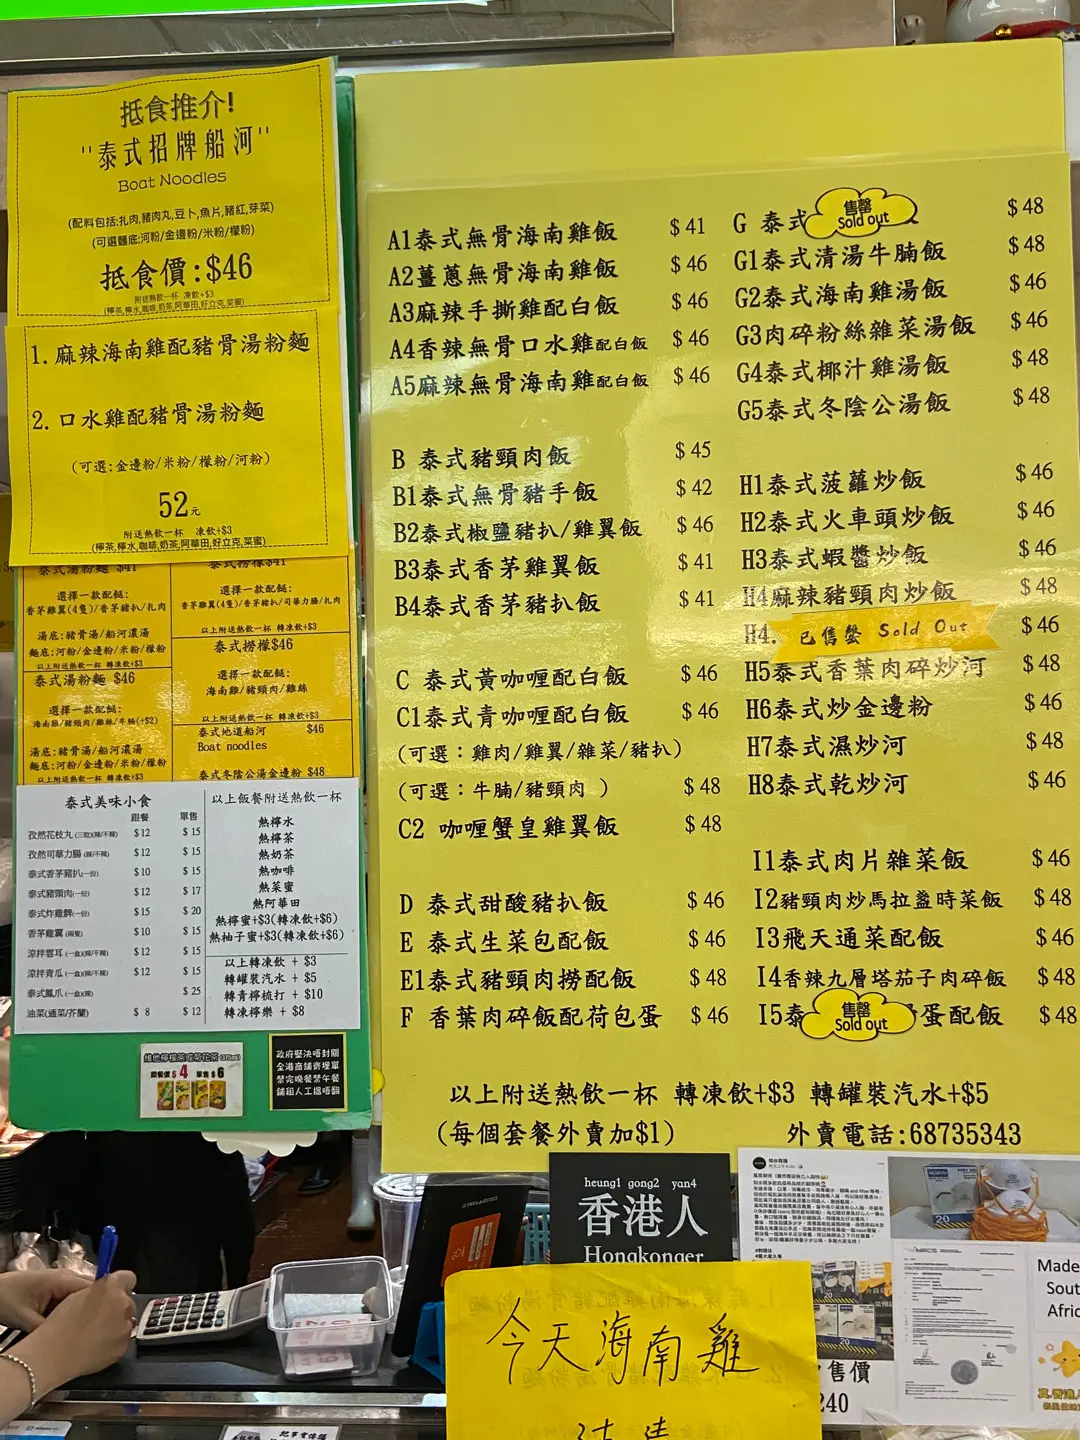 抵食推介!
"泰式招牌船河"
Boat Noodles
(配料包括:扎肉,豬肉丸,豆卜,魚片,豬紅,芽菜)
(可選麵底:河粉/金邊粉/米粉/檬粉)
抵食價:$46
附送熱飲一杯 凍飲+$3
(檸茶,檸水,咖啡,奶茶,阿華田,好立克,菜蜜)
1. 麻辣海南雞配豬骨湯粉麵
2. 口水雞配豬骨湯粉麵
(可選:金邊粉/米粉/檬粉/河粉)
52元
附送熱飲一杯 凍飲+$3
(檸茶,檸水,咖啡,奶茶,阿華田,好立克,菜蜜)
泰式湯粉麵 $41
選擇一款配餸:
香茅雞翼(4隻)/香茅豬扒/扎肉
湯底:豬骨湯/船河濃湯
麵底:河粉/金邊粉/米粉/檬粉
以上附送熱飲一杯 轉凍飲+$3
泰式湯粉麵 $46
選擇一款配餸:
海南雞/豬頸肉/雞絲/牛腩(+$2)
湯底:豬骨湯/船河濃湯
麵底:河粉/金邊粉/米粉/檬粉
以上附送熱飲一杯 轉凍飲+$3
泰式撈檬$41
選擇一款配餸:
香茅雞翼(4隻)/香茅豬扒/司華力腸/扎肉
以上附送熱飲一杯 轉凍飲+$3
泰式撈檬$46
選擇一款配餸:
海南雞/豬頸肉/雞絲
以上附送熱飲一杯 轉凍飲+$3
泰式地道船河 $46
Boat noodles
泰式冬陰公湯金邊粉 $48
泰式美味小食
跟餐 單售
孜然花枝丸(三粒)(辣/不辣) $12 $15
孜然司華力腸(辣/不辣) $12 $15
泰式香茅豬扒(一份) $10 $15
泰式豬頸肉(一份) $12 $17
泰式炸雞髀(一份) $15 $20
香茅雞翼(兩隻) $10 $15
涼拌雲耳(一盒)(辣/不辣) $12 $15
涼拌青瓜(一盒)(辣/不辣) $12 $15
泰式鳳爪(一盒)(辣) $25
油菜(通菜/芥蘭) $ 8 $12
以上飯餐附送熱飲一杯
熱檸水
熱檸茶
熱奶茶
熱咖啡
熱菜蜜
熱阿華田
熱檸蜜+$3(轉凍飲+$6)
熱柚子蜜+$3(轉凍飲+$6)
以上轉凍飲 + $3
轉罐裝汽水 + $5
轉青檸梳打 + $10
轉凍檸樂 + $8
維他檸檬茶或菊花茶(375ml)
跟餐價$4 單售$6
政府堅決唔封關
全港商舖齊埋單
禁完晚餐禁午餐
舖租人工搵唔翻
A1泰式無骨海南雞飯 $41
A2薑蔥無骨海南雞飯 $46
A3麻辣手撕雞配白飯 $46
A4香辣無骨口水雞配白飯 $46
A5麻辣無骨海南雞配白飯 $46
B 泰式豬頸肉飯 $45
B1泰式無骨豬手飯 $42
B2泰式椒鹽豬扒/雞翼飯 $46
B3泰式香茅雞翼飯 $41
B4泰式香茅豬扒飯 $41
C 泰式黃咖喱配白飯 $46
C1泰式青咖喱配白飯 $46
(可選：雞肉/雞翼/雜菜/豬扒)
(可選：牛腩/豬頸肉 ) $48
C2 咖喱蟹皇雞翼飯 $48
D 泰式甜酸豬扒飯 $46
E 泰式生菜包配飯 $46
E1泰式豬頸肉撈配飯 $48
F 香葉肉碎飯配荷包蛋 $46
G 泰式 售罄 Sold out $48
G1泰式清湯牛腩飯 $48
G2泰式海南雞湯飯 $46
G3肉碎粉絲雜菜湯飯 $46
G4泰式椰汁雞湯飯 $48
G5泰式冬陰公湯飯 $48
H1泰式菠蘿炒飯 $46
H2泰式火車頭炒飯 $46
H3泰式蝦醬炒飯 $46
H4麻辣豬頸肉炒飯 $48
H4. 已售罄 Sold Out $46
H5泰式香葉肉碎炒河 $48
H6泰式炒金邊粉 $46
H7泰式濕炒河 $48
H8泰式乾炒河 $46
I1泰式肉片雜菜飯 $46
I2豬頸肉炒馬拉盞時菜飯 $48
I3飛天通菜配飯 $46
I4香辣九層塔茄子肉碎飯 $48
I5泰 售罄 Sold out 蛋配飯 $48
以上附送熱飲一杯 轉凍飲+$3 轉罐裝汽水+$5
(每個套餐外賣加$1) 外賣電話:68735343
heung1 gong2 yan4
香港人
Hongkonger
今天海南雞
NRCS
Made
Sout
Afric
售價
240